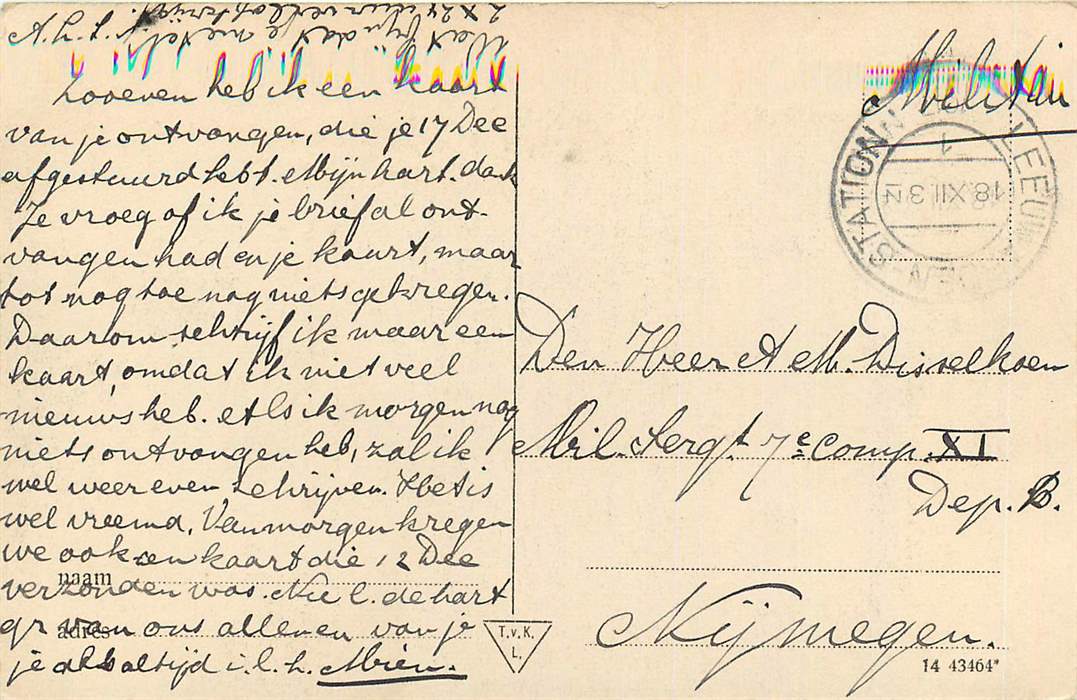 A. h. L.
Wat fijn dat je met
2 x 24 uur verlof krijgt.
Zooeven heb ik een kaart
van je ontvangen, die je 17 Dec
afgestuurd hebt. Mijn hart. dank
Je vroeg of ik je brief al ont-
vangen had en je kaart, maar
tot nog toe nog niets gekregen.
Daarom schrijf ik maar een
kaart, omdat ik niet veel
nieuws heb. Als ik morgen nog
niets ontvangen heb, zal ik
wel weer even schrijven. Het is
wel vreemd. Vanmorgen kregen
we ook een kaart die 12 Dec
naam
verzonden was. Nu l. de hart
adres
gr van ons allen en van je
je als altijd i. l. h. Mien.
T.v.K.
L.
Militair
STATION LEEUW
1
18.XII.3 N
Den Heer A M. Disselkoen
Mil. Sergt. 7e Comp. XI
Dep. B.
Nijmegen.
14 43464*